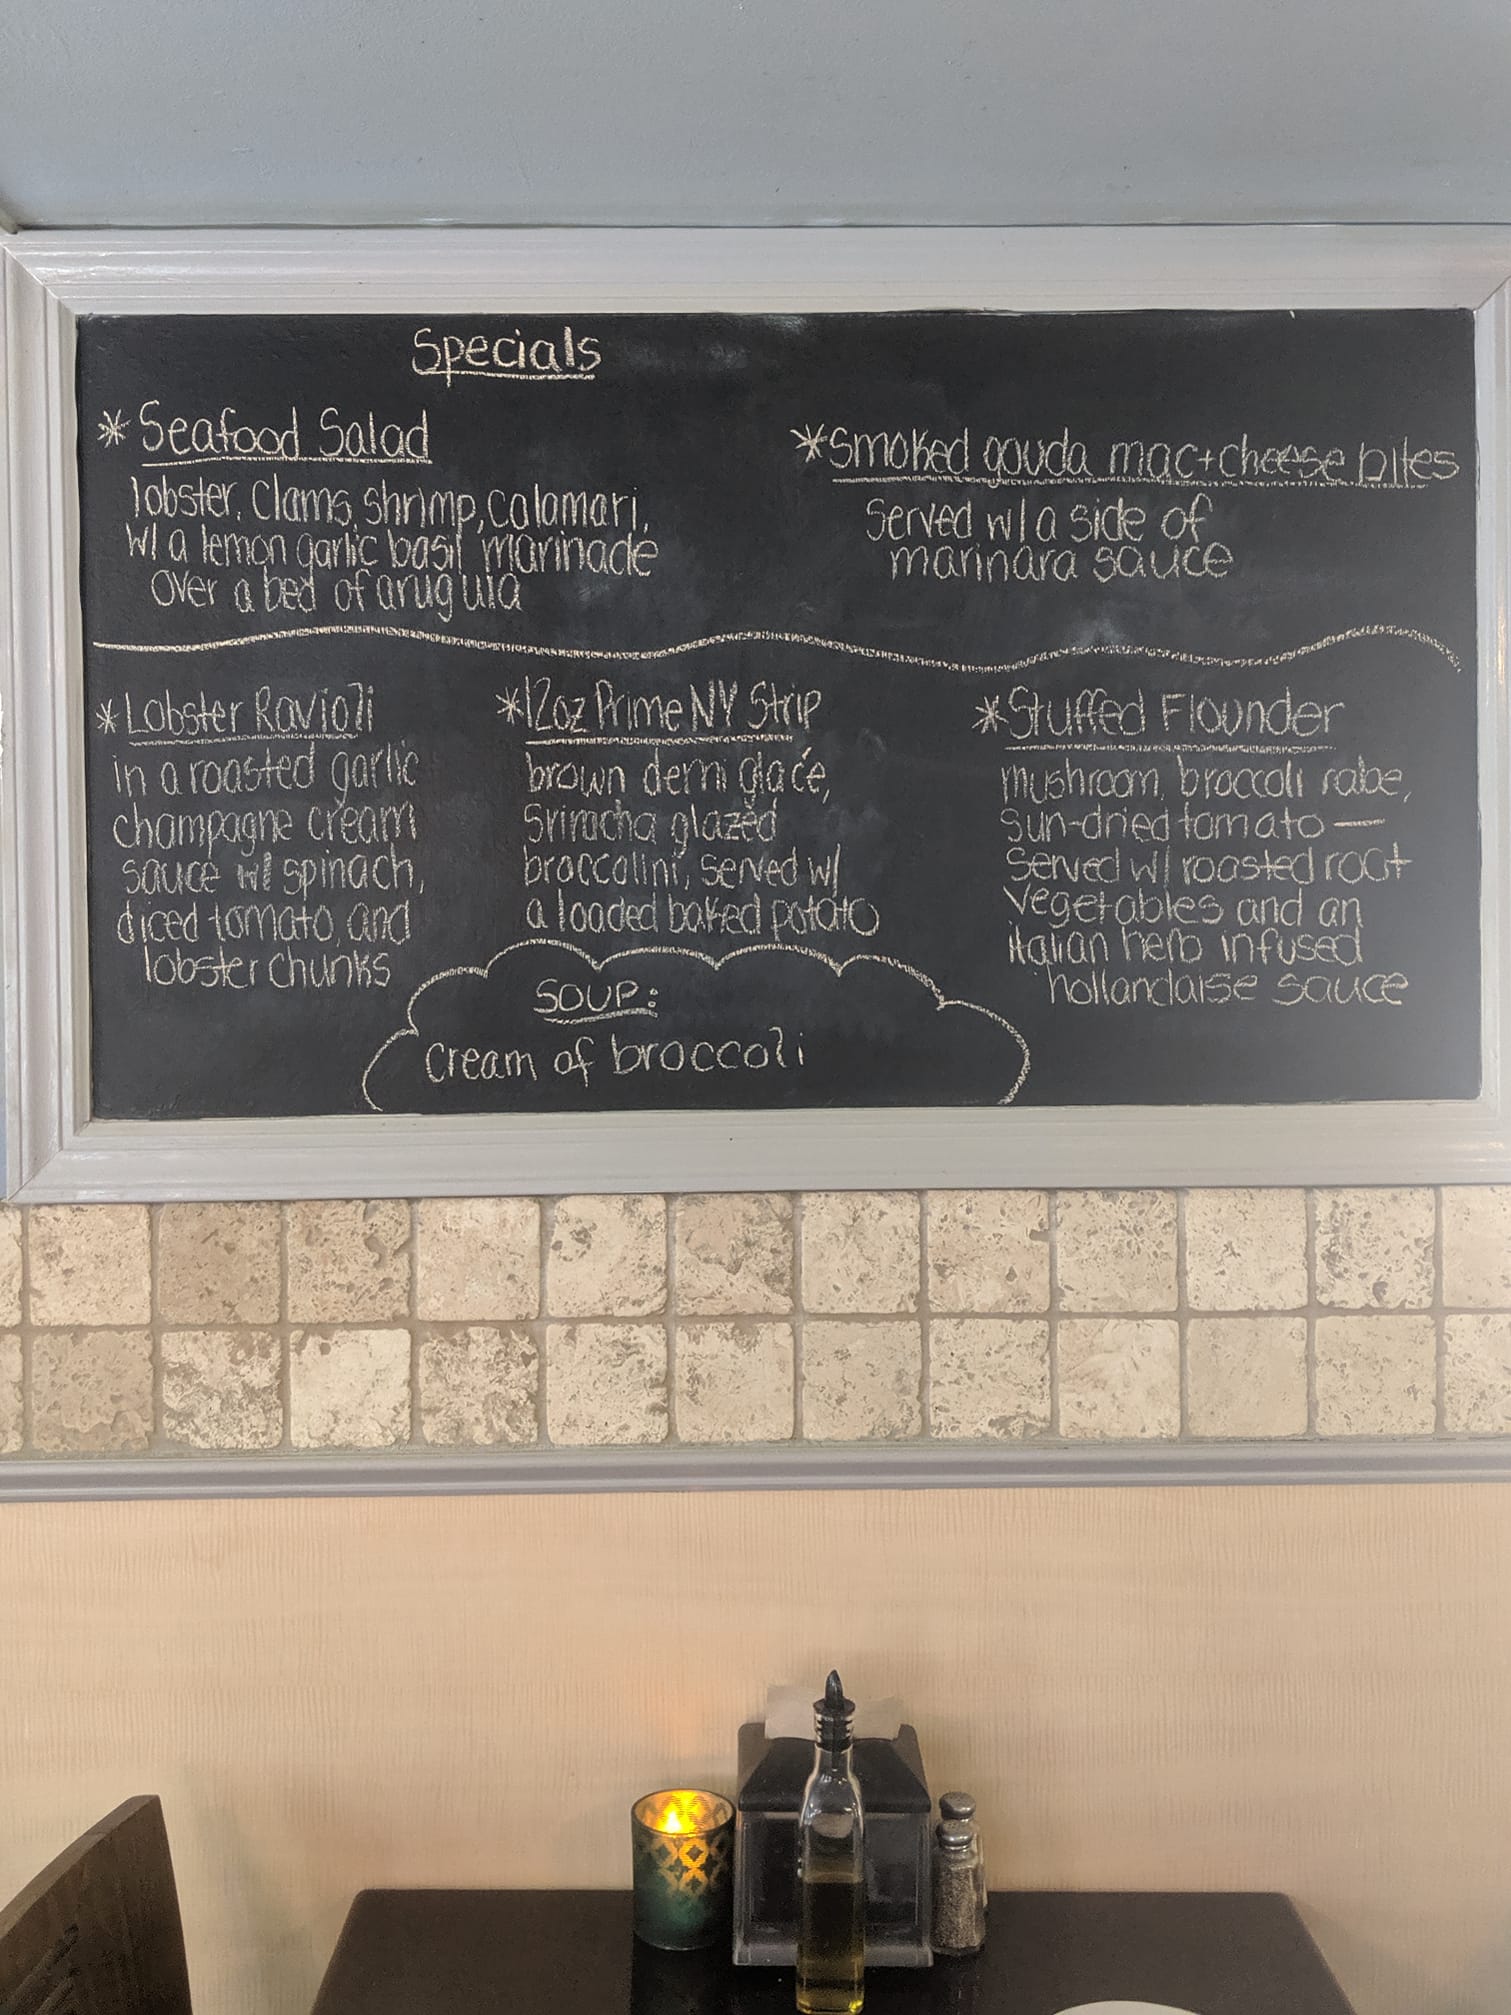 Specials
* Seafood Salad
lobster, clams, shrimp, calamari,
w/ a lemon garlic basil marinade
over a bed of arugula
* Smoked gouda mac + cheese bites
Served w/ a side of
marinara sauce
* Lobster Ravioli
in a roasted garlic
champagne cream
sauce w/ spinach,
diced tomato, and
lobster chunks
* 12oz Prime NY Strip
brown demi glacé,
Sriracha glazed
broccolini, served w/
a loaded baked potato
* Stuffed Flounder
mushroom, broccoli rabe,
sun-dried tomato —
served w/ roasted root
vegetables and an
italian herb infused
hollandaise sauce
SOUP:
Cream of broccoli